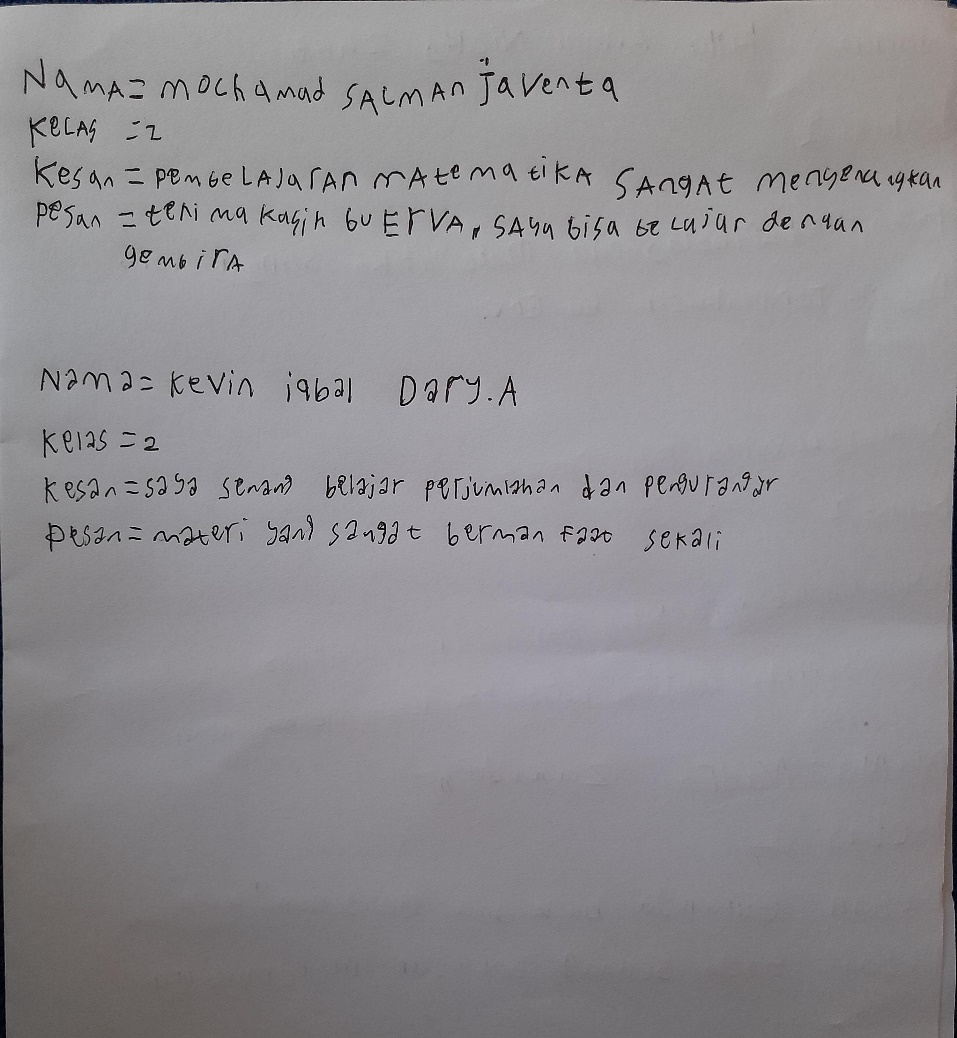 NaMA= MOCHAMAD SALMAN javenta
KELAS = 2
Kesan = PEMbeLAJARAN MATEMATIKA SANgAT menyenangkan
pesan = teri ma kasih bu ERVA, SAya bisa belajar dengan
gembirA
Nama= Kevin iqbal Dary.A
Kelas = 2
Kesan = saya senang belajar perjumlahan dan pengurangan
pesan = materi yang sangat berman Faat sekali